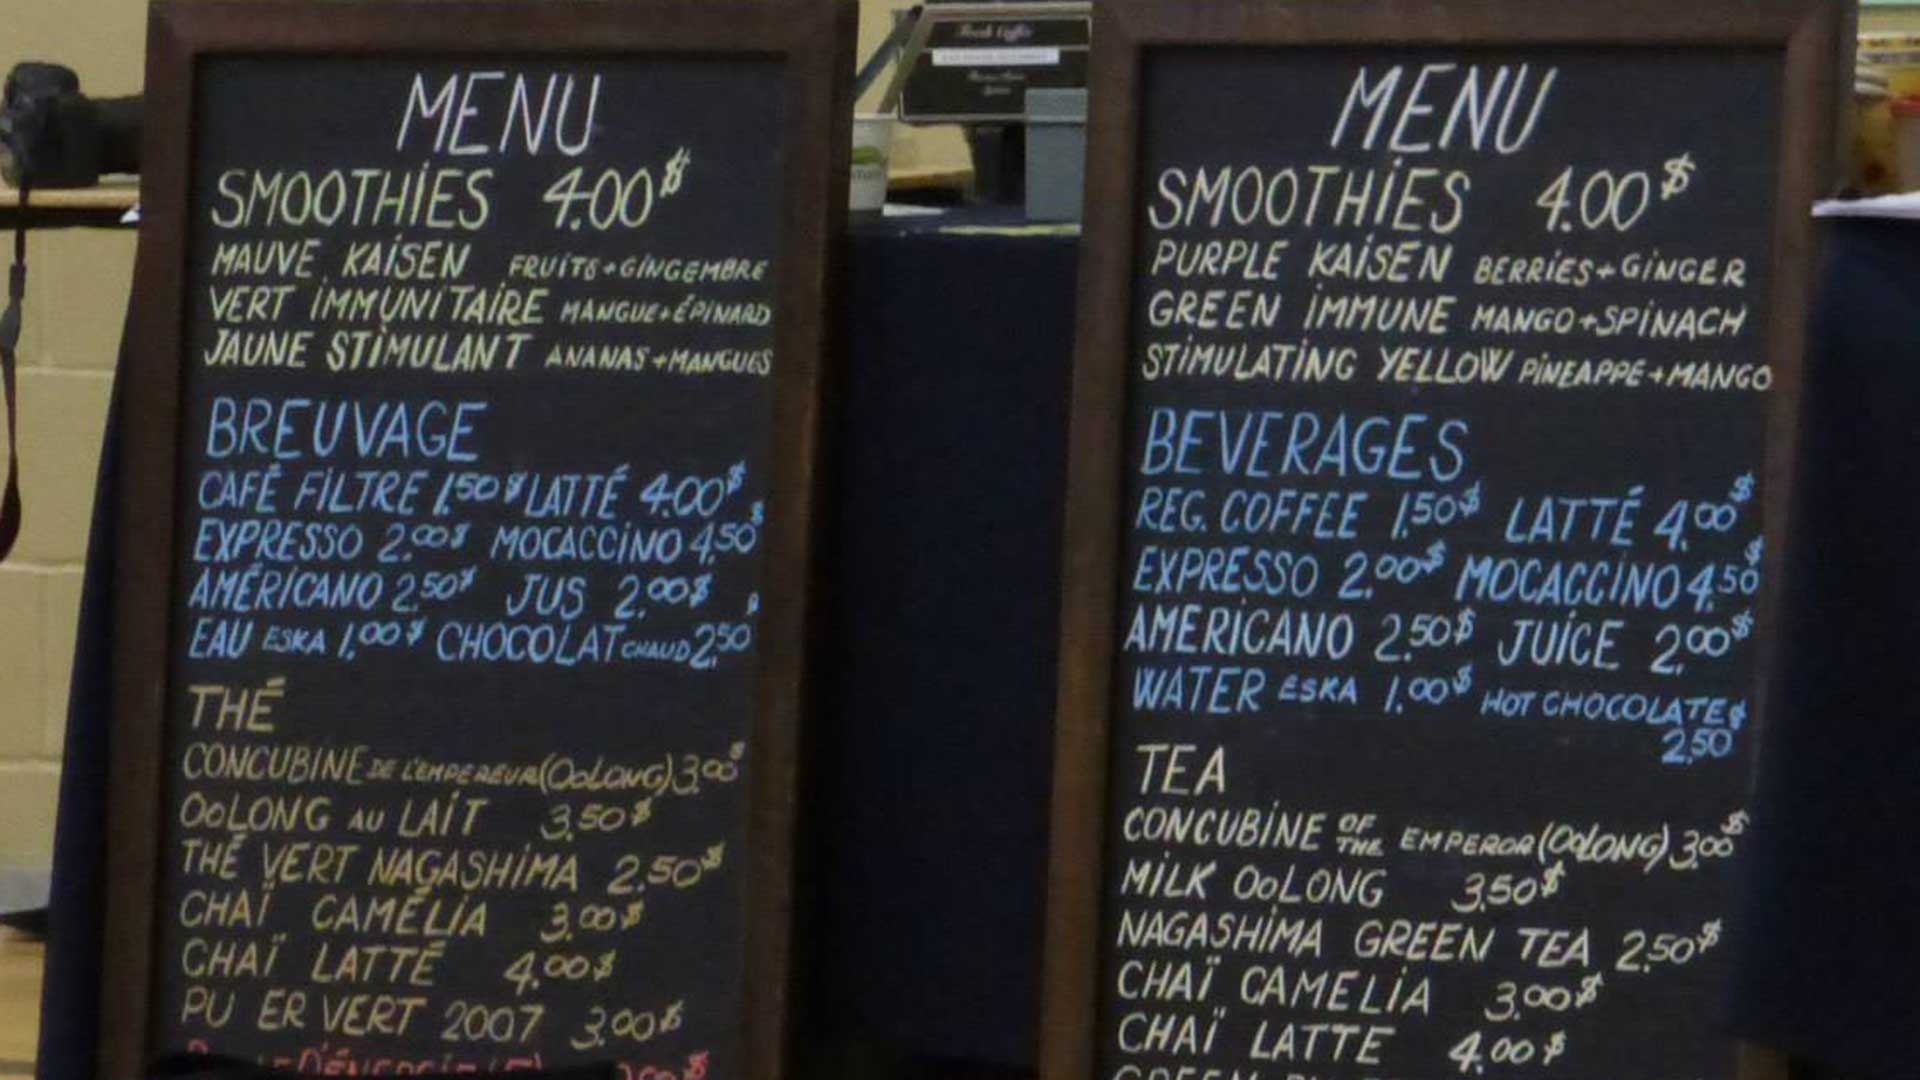 MENU
SMOOTHIES 4.00$
MAUVE KAISEN FRUITS+GINGEMBRE
VERT IMMUNITAIRE MANGUE+ÉPINARD
JAUNE STIMULANT ANANAS+MANGUES
BREUVAGE
CAFÉ FILTRE 1.50$ LATTÉ 4.00$
EXPRESSO 2.00$ MOCACCINO 4.50$
AMÉRICANO 2.50$ JUS 2.00$
EAU ESKA 1.00$ CHOCOLAT CHAUD 2.50$
THÉ
CONCUBINE DE L'EMPEREUR (OOLONG) 3.00$
OOLONG AU LAIT 3.50$
THÉ VERT NAGASHIMA 2.50$
CHAÏ CAMÉLIA 3.00$
CHAÏ LATTÉ 4.00$
PU ER VERT 2007 3.00$
MENU
SMOOTHIES 4.00$
PURPLE KAISEN BERRIES+GINGER
GREEN IMMUNE MANGO+SPINACH
STIMULATING YELLOW PINEAPPE+MANGO
BEVERAGES
REG. COFFEE 1.50$ LATTÉ 4.00$
EXPRESSO 2.00$ MOCACCINO 4.50$
AMERICANO 2.50$ JUICE 2.00$
WATER ESKA 1.00$ HOT CHOCOLATE $
2.50
TEA
CONCUBINE OF THE EMPEROR (OOLONG) 3.00$
MILK OOLONG 3.50$
NAGASHIMA GREEN TEA 2.50$
CHAÏ CAMELIA 3.00$
CHAÏ LATTE 4.00$